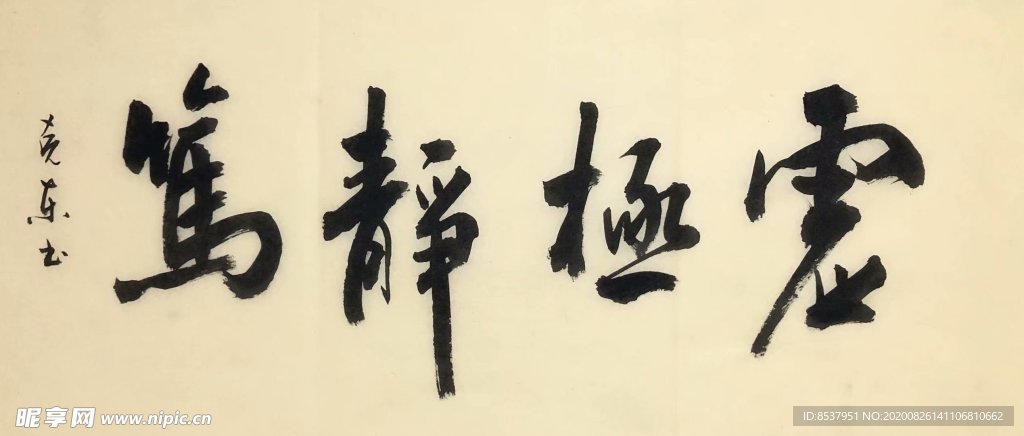 虚極靜篤
克東书
昵享网 www.nipic.cn
ID:8537951 NO:20200826141106810662